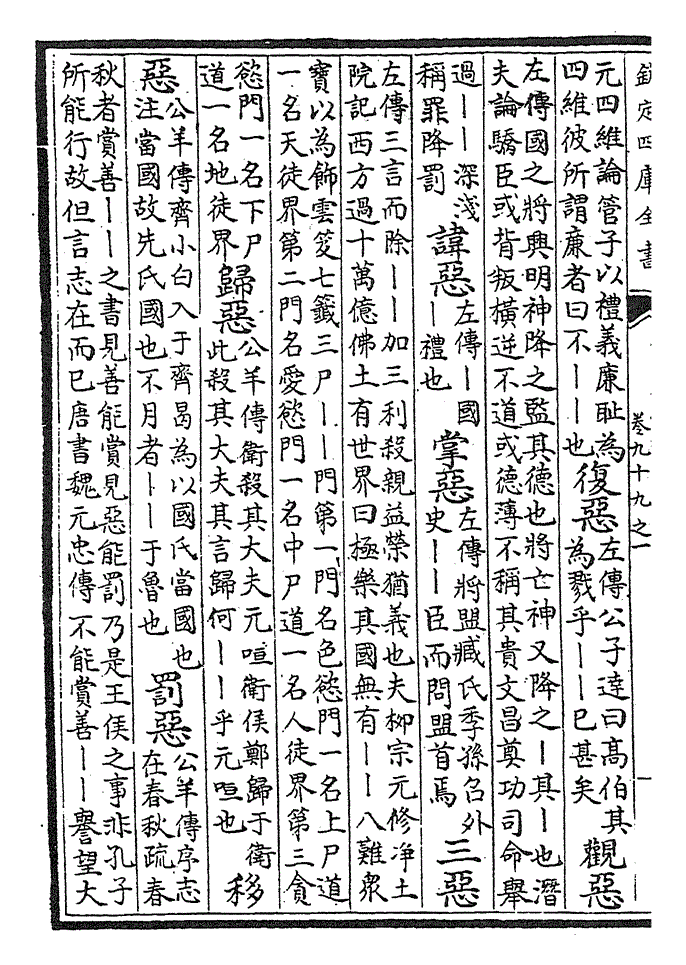 欽定四庫全書 卷九十九之一
元四維論管子以禮義廉耻為四維彼所謂廉者曰不——也 復惡 左傳公子達曰髙伯其為戮乎——已甚矣 觀惡
左傳國之將興明神降之監其德也將亡神又降之—其—也潛夫論驕臣或背叛橫逆不道或德薄不稱其貴文昌奠功司命舉
過——深淺稱罪降罰 諱惡 左傳—國—禮也 掌惡 左傳將盟臧氏季孫召外史——臣而問盟首焉 三惡
左傳三言而除——加三利殺親益榮猶義也夫柳宗元修净土院記西方過十萬億佛土有世界曰極樂其國無有——八難衆
寶以為飾雲笈七籤三尸——門第一門名色慾門一名上尸道一名天徒界第二門名愛慾門一名中尸道一名人徒界第三貪
慾門一名下尸道一名地徒界 歸惡 公羊傳衛殺其大夫元咺衛侯鄭歸于衛此殺其大夫其言歸何——乎元咺也 移
惡 公羊傳齊小白入于齊曷為以國氏當國也注當國故先氏國也不月者——于魯也 罰惡 公羊傳序志在春秋疏春
秋者賞善——之書見善能賞見惡能罰乃是王侯之事非孔子所能行故但言志在而已唐書魏元忠傳不能賞善——譽望大